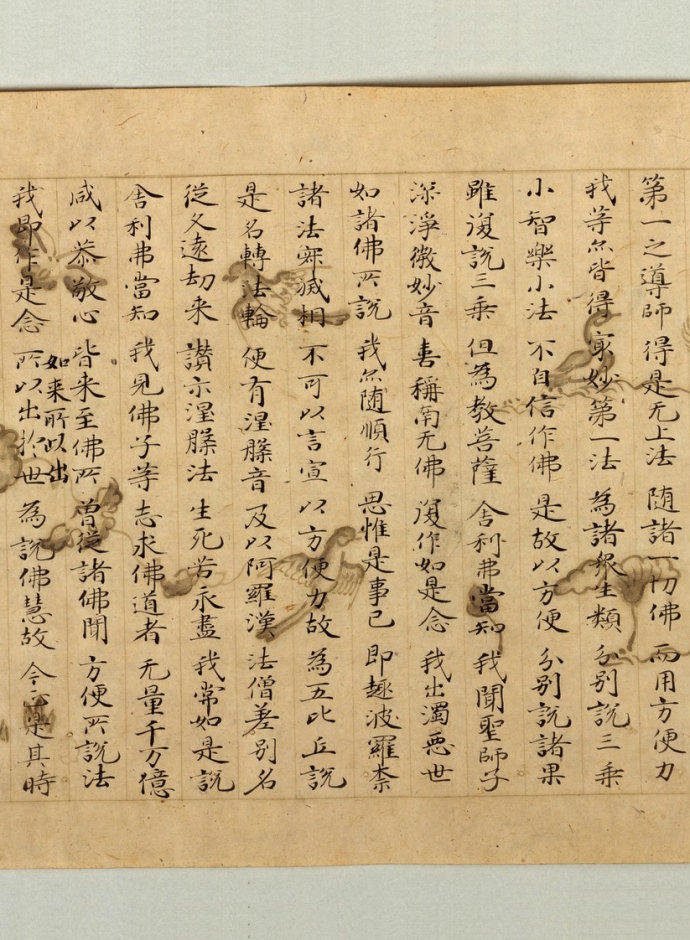 第一之導師 得是无上法 随諸一切佛 而用方便力
我等亦皆得 㝡妙第一法 為諸衆生類 分別説三乗
小智樂小法 不自信作佛 是故以方便 分別説諸果
雖復説三乗 但為教菩薩 舎利弗當知 我聞聖師子
深淨微妙音 喜稱南无佛 復作如是念 我出濁悪世
如諸佛所説 我亦随順行 思惟是事已 即趣波羅柰
諸法寂滅相 不可以言宣 以方便力故 為五比丘説
是名轉法輪 便有涅槃音 及以阿羅漢 法僧差別名
従久遠劫来 讃示涅槃法 生死苦永盡 我常如是説
舎利弗當知 我見佛子等 志求佛道者 无量千万億
咸以恭敬心 皆来至佛所 曽従諸佛聞 方便所説法
如来所以出
我即作是念 所以出於世 為説佛慧故 今正是其時